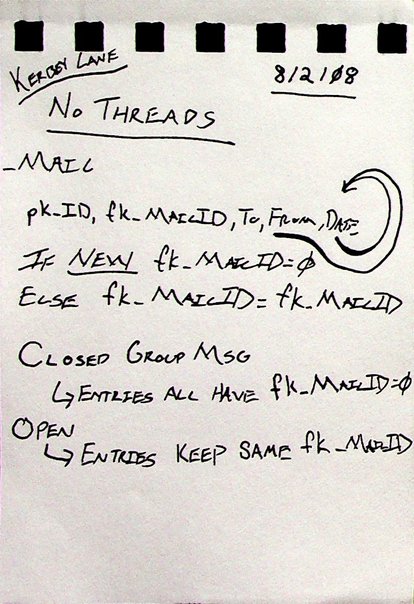 KERBEY LANE
8/2/08
NO THREADS
_MAIL
pk_ID, fk_MAILID, To, FROM, DATE
IF NEW fk_MAILID=ø
ELSE fk_MAILID= fk_MAILID
CLOSED GROUP MSG
↳ ENTRIES ALL HAVE fk_MAILID=ø
OPEN
↳ ENTRIES KEEP SAME fk_MAILID